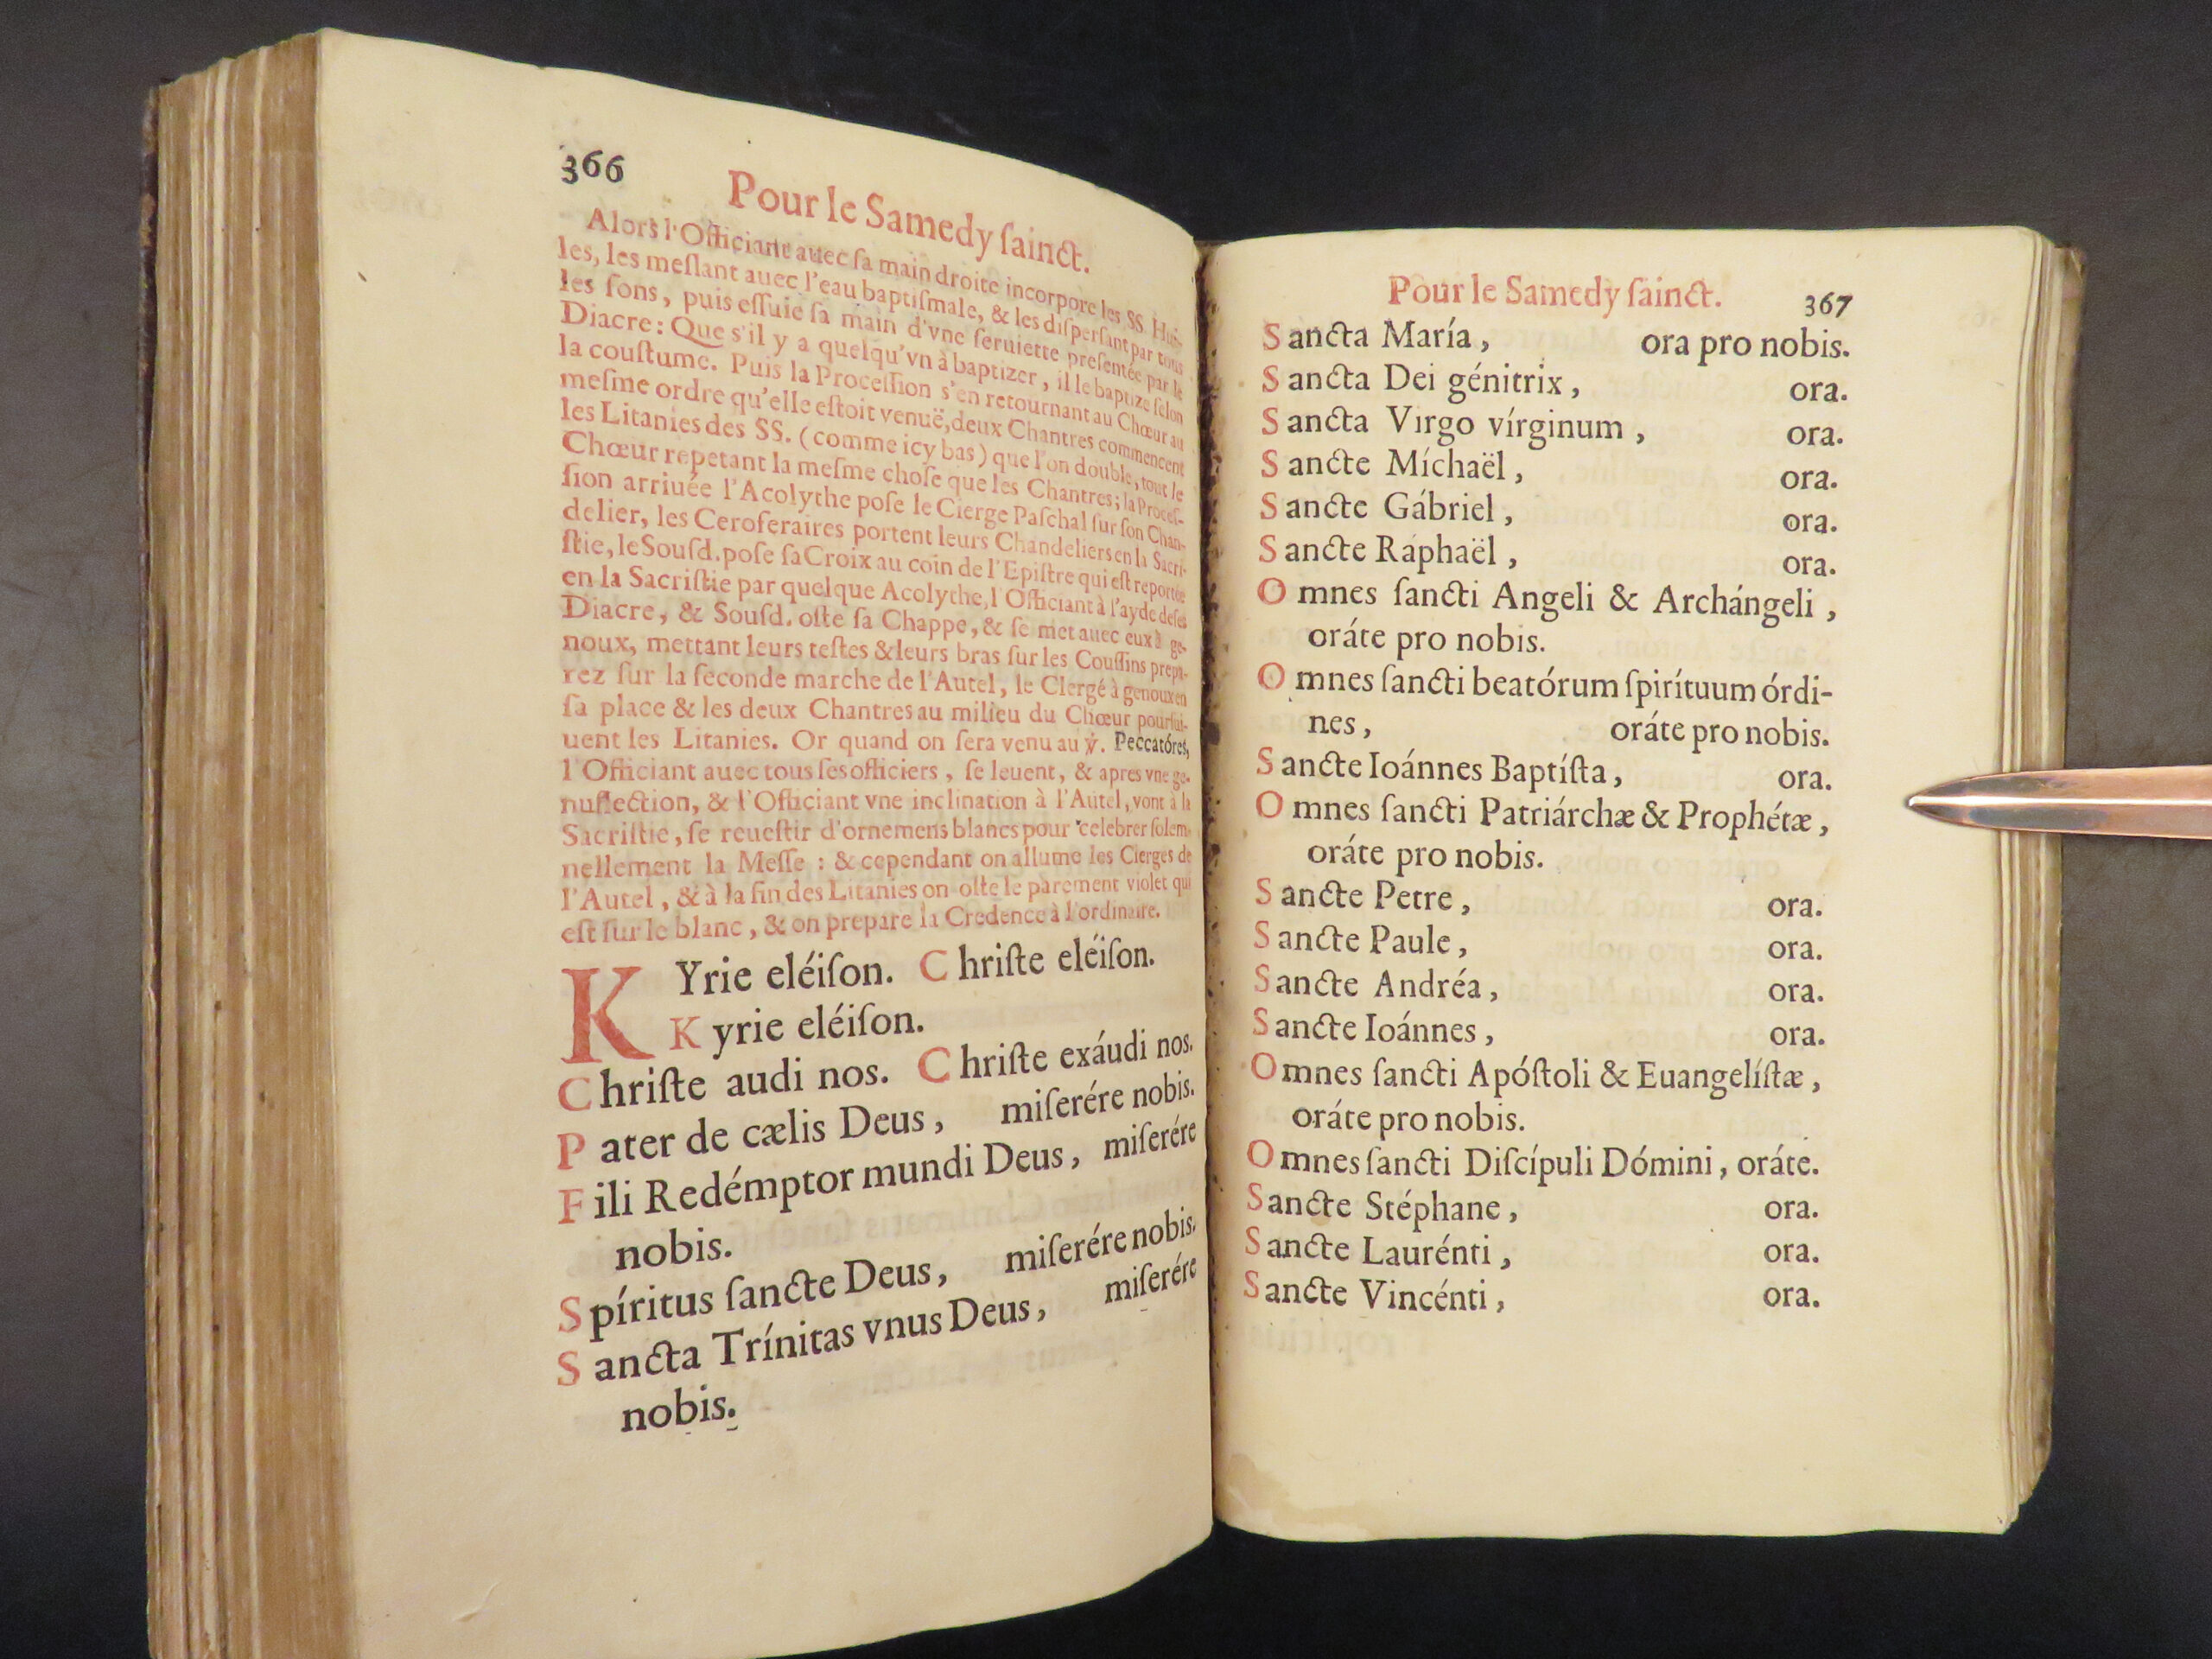 366
Pour le Samedy ſainct.
Alors l'Officiant auec ſa main droite incorpore les SS. Hui-
les, les meſlant auec l'eau baptiſmale, & les diſperſant par tous
les fons, puis eſſuie ſa main d'vne ſeruiette preſentée par le
Diacre: Que s'il y a quelqu'vn à baptizer, il le baptize ſelon
la couſtume. Puis la Proceſſion s'en retournant au Chœur au
meſme ordre qu'elle eſtoit venuë, deux Chantres commencent
les Litanies des SS. (comme icy bas) que l'on double, tout le
Chœur repetant la meſme choſe que les Chantres; la Proceſ-
ſion arriuée l'Acolythe poſe le Cierge Paſchal ſur ſon Chan-
delier, les Ceroferaires portent leurs Chandeliers en la Sacri-
ſtie, le Souſd. poſe ſa Croix au coin de l'Epiſtre qui eſt reportée
en la Sacriſtie par quelque Acolythe, l'Officiant à l'ayde de ſes
Diacre, & Souſd. oſte ſa Chappe, & ſe met auec eux à ge-
noux, mettant leurs teſtes & leurs bras ſur les Couſſins prepa-
rez ſur la ſeconde marche de l'Autel, le Clergé à genoux en
ſa place & les deux Chantres au milieu du Chœur pourſui-
uent les Litanies. Or quand on ſera venu au ℣. Peccatóres,
l'Officiant auec tous ſes officiers, ſe leuent, & apres vne ge-
nuflection, & l'Officiant vne inclination à l'Autel, vont à la
Sacriſtie, ſe reueſtir d'ornemens blancs pour celebrer ſolem-
nellement la Meſſe : & cependant on allume les Cierges de
l'Autel, & à la fin des Litanies on oſte le parement violet qui
eſt ſur le blanc, & on prepare la Credence à l'ordinaire.
KYrie eléiſon. Chriſte eléiſon.
Kyrie eléiſon.
Chriſte audi nos. Chriſte exáudi nos.
Pater de cælis Deus, miſerére nobis.
Fili Redémptor mundi Deus, miſerére
nobis.
Spíritus ſancte Deus, miſerére nobis.
Sancta Trínitas vnus Deus, miſerére
nobis.
Pour le Samedy ſainct. 367
Sancta María, ora pro nobis.
Sancta Dei génitrix, ora.
Sancta Virgo vírginum, ora.
Sancte Míchaël, ora.
Sancte Gábriel, ora.
Sancte Ráphaël, ora.
Omnes ſancti Angeli & Archángeli,
oráte pro nobis.
Omnes ſancti beatórum ſpirítuum órdi-
nes, oráte pro nobis.
Sancte Ioánnes Baptíſta, ora.
Omnes ſancti Patriárchæ & Prophétæ,
oráte pro nobis.
Sancte Petre, ora.
Sancte Paule, ora.
Sancte Andréa, ora.
Sancte Ioánnes, ora.
Omnes ſancti Apóſtoli & Euangelíſtæ,
oráte pro nobis.
Omnes ſancti Diſcípuli Dómini, oráte.
Sancte Stéphane, ora.
Sancte Laurénti, ora.
Sancte Vincénti, ora.